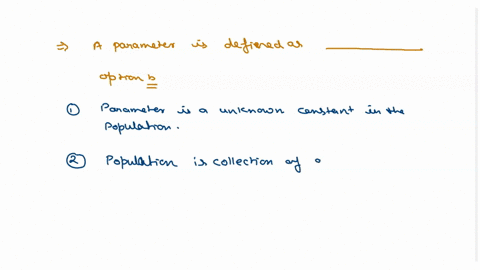 ⇒ A parameter is defined as ________
option b
① Parameter is a unknown constant in the
Population.
② Population is collection of